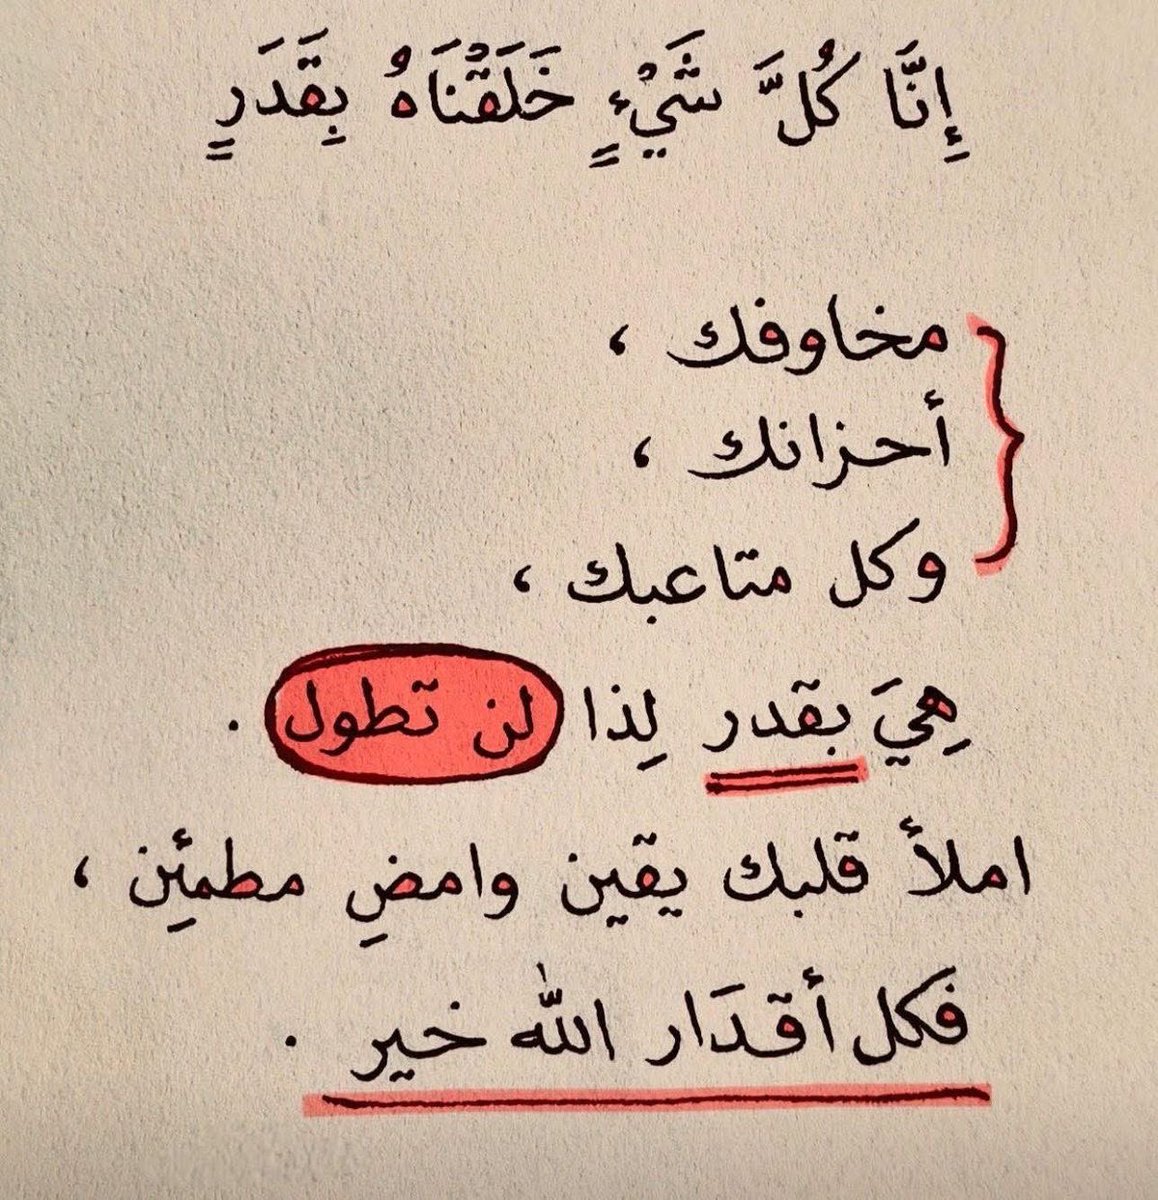 إِنَّا كُلَّ شَيْءٍ خَلَقْنَاهُ بِقَدَرٍ
مخاوفك ،
أحزانك ،
وكل متاعبك ،
هِيَ بقدر لِذا لن تطول .
املأ قلبك يقين وامضِ مطمئِن ،
فكل أقدَار الله خير .